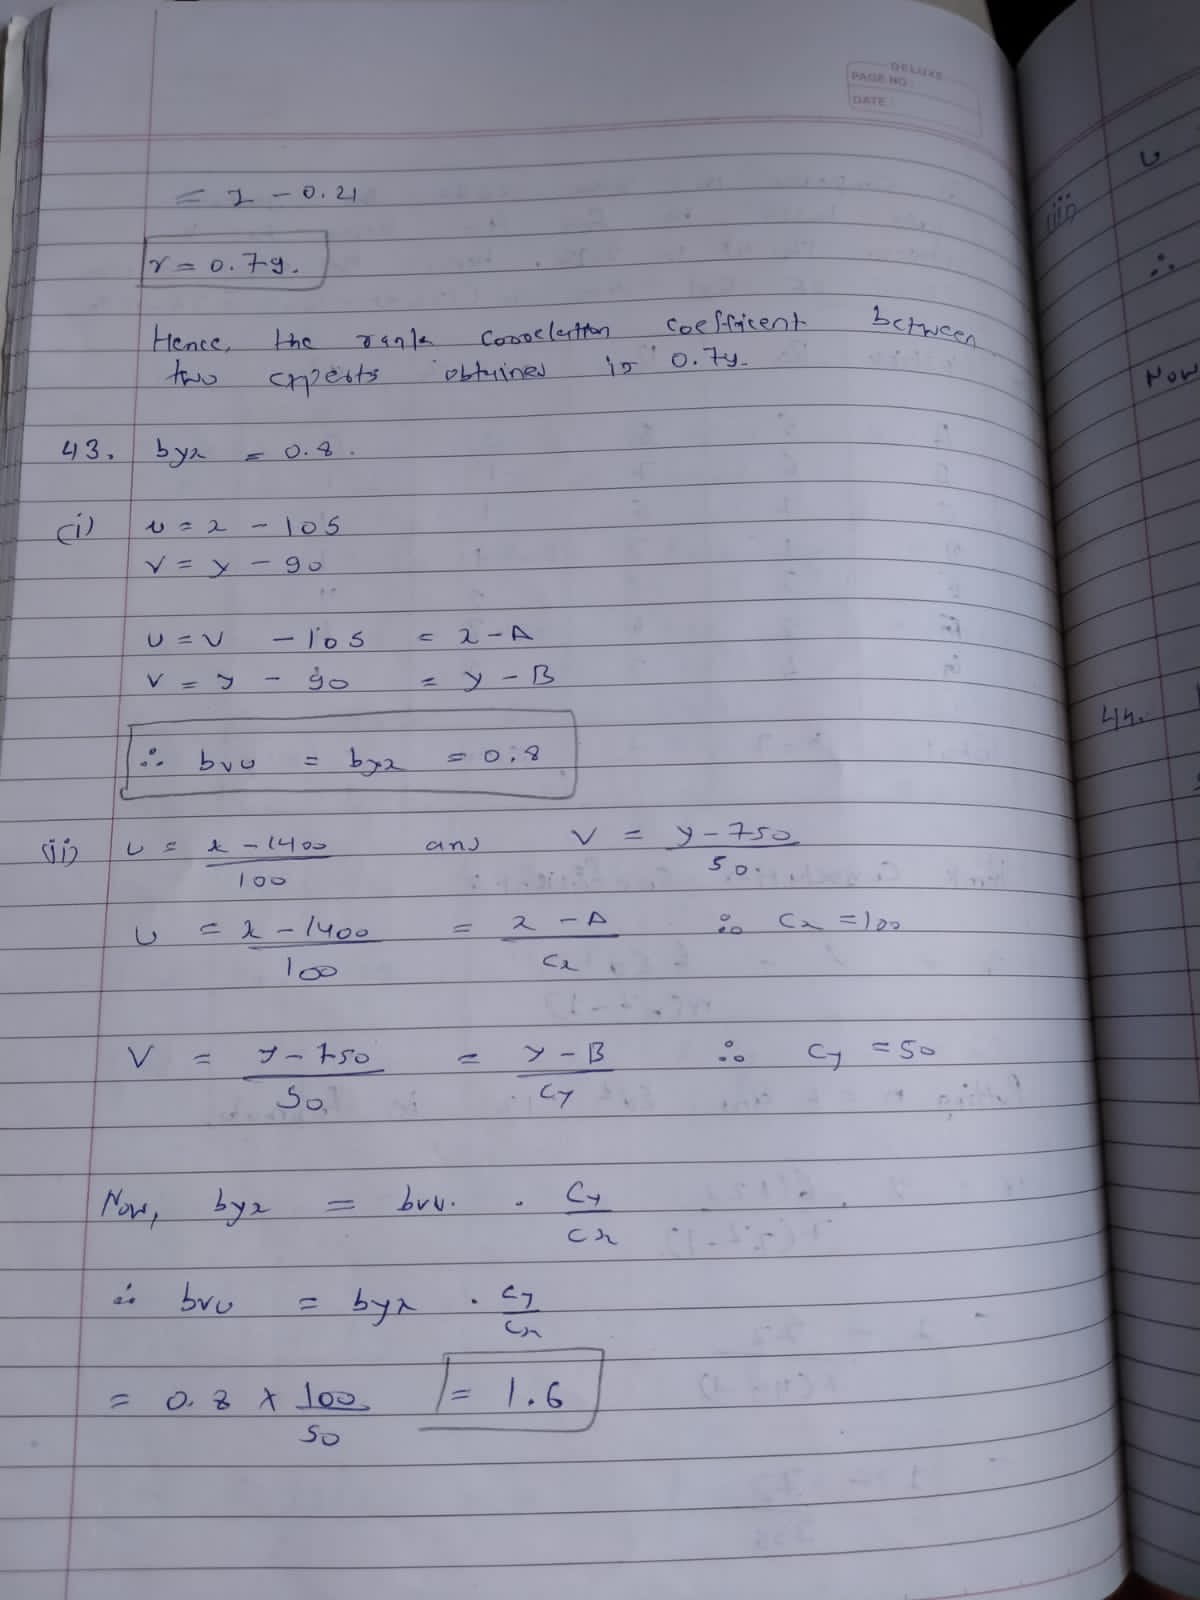 DELUXE
PAGE NO :
DATE :
= 1 - 0.21
r = 0.79.
Hence, the rank correlation coefficient between
two experts obtained is 0.79.
43. byx = 0.8.
(i) u = x - 105
v = y - 90
u = v - 105 = x - A
v = y - 90 = y - B
∴ bvu = byx = 0.8
(ii) u = x - 1400 / 100 and v = y - 750 / 50.
u = x - 1400 / 100 = x - A / cx ∴ cx = 100
v = y - 750 / 50 = y - B / cy ∴ cy = 50
Now, byx = bvu. . cy / cx
∴ bvu = byx . cy / cx
= 0.8 x 100 / 50 = 1.6
u
iii)
∴
Now
44.